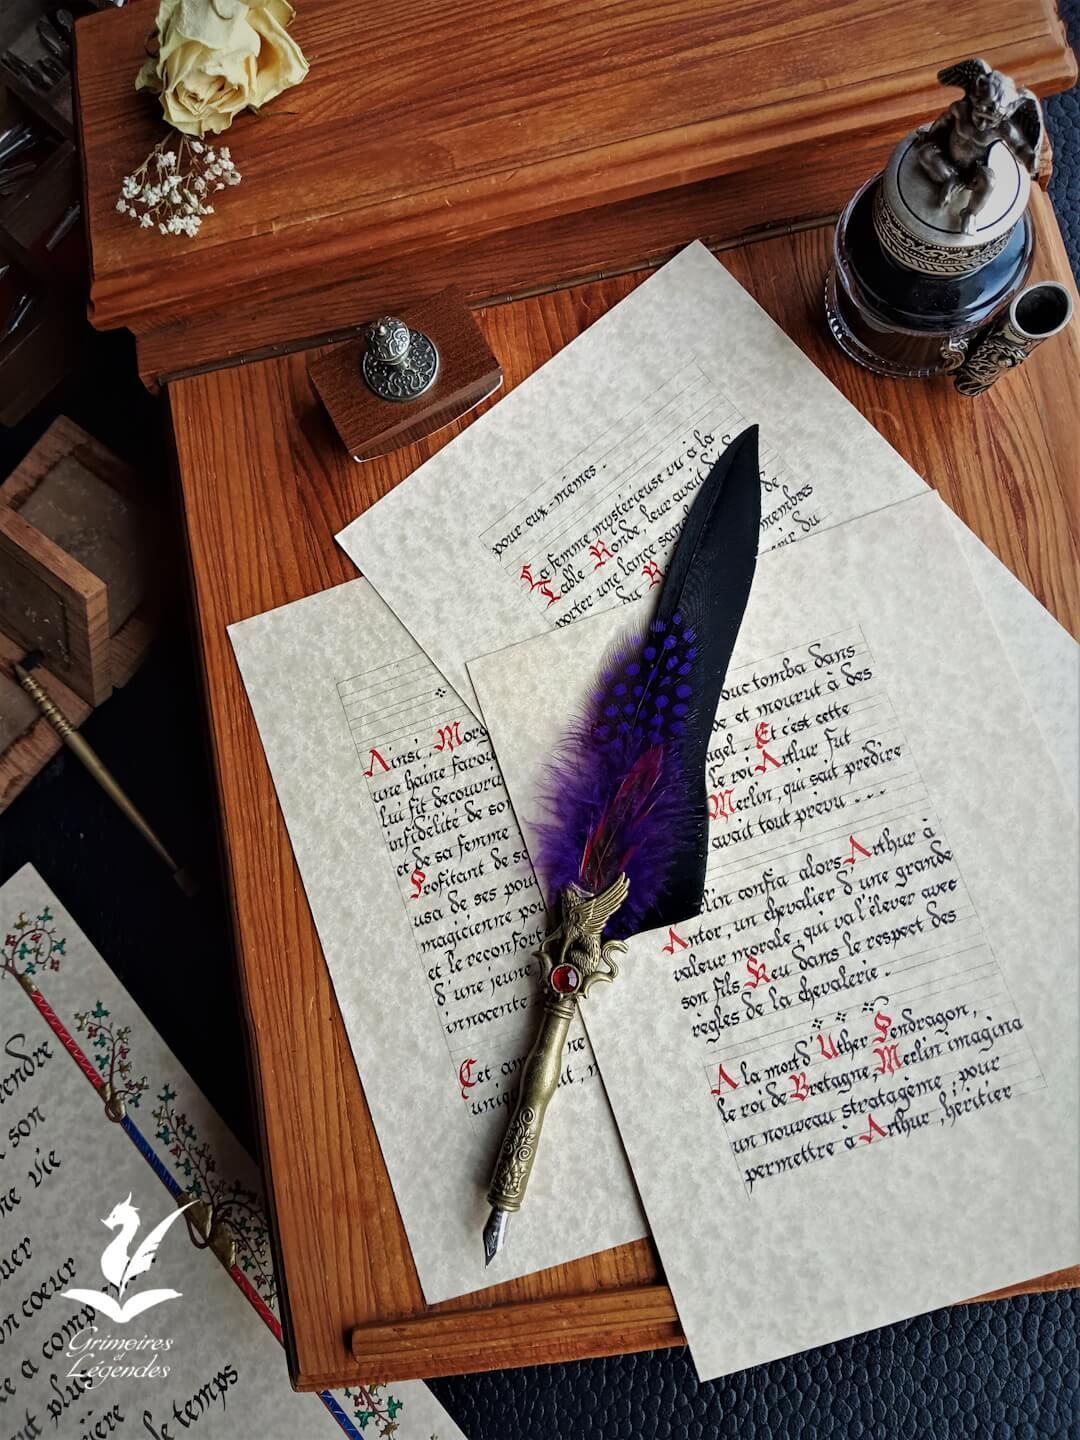 pour eux-mêmes.
La femme mystérieuse vit à la
Table Ronde, leur avait
de
porter une lance
membres
du
du
Ainsi, Morg
une haine farou
lui fit découvrir
infidélité de so
et de sa femme
Profitant de
usa de ses pou
magicienne pou
et le reconfort
d'une jeune
innocente
Cet am
ne
uniq
tomba dans
de et mourut à des
agel. Et c'est cette
le roi Arthur fut
Merlin, qui sait prédire
avait tout prévu...
lin confia alors Arthur à
Antor, un chevalier d'une grande
valeur morale, qui va l'élever avec
son fils Keu dans le respect des
règles de la chevalerie.
A la mort d'Uther Pendragon,
le roi de Bretagne, Merlin imagina
un nouveau stratagème, pour
permettre à Arthur, héritier
endre
son
ne vie
uer
on coeur
a comp
plus
ière
le temps
Grimoires
et
Légendes